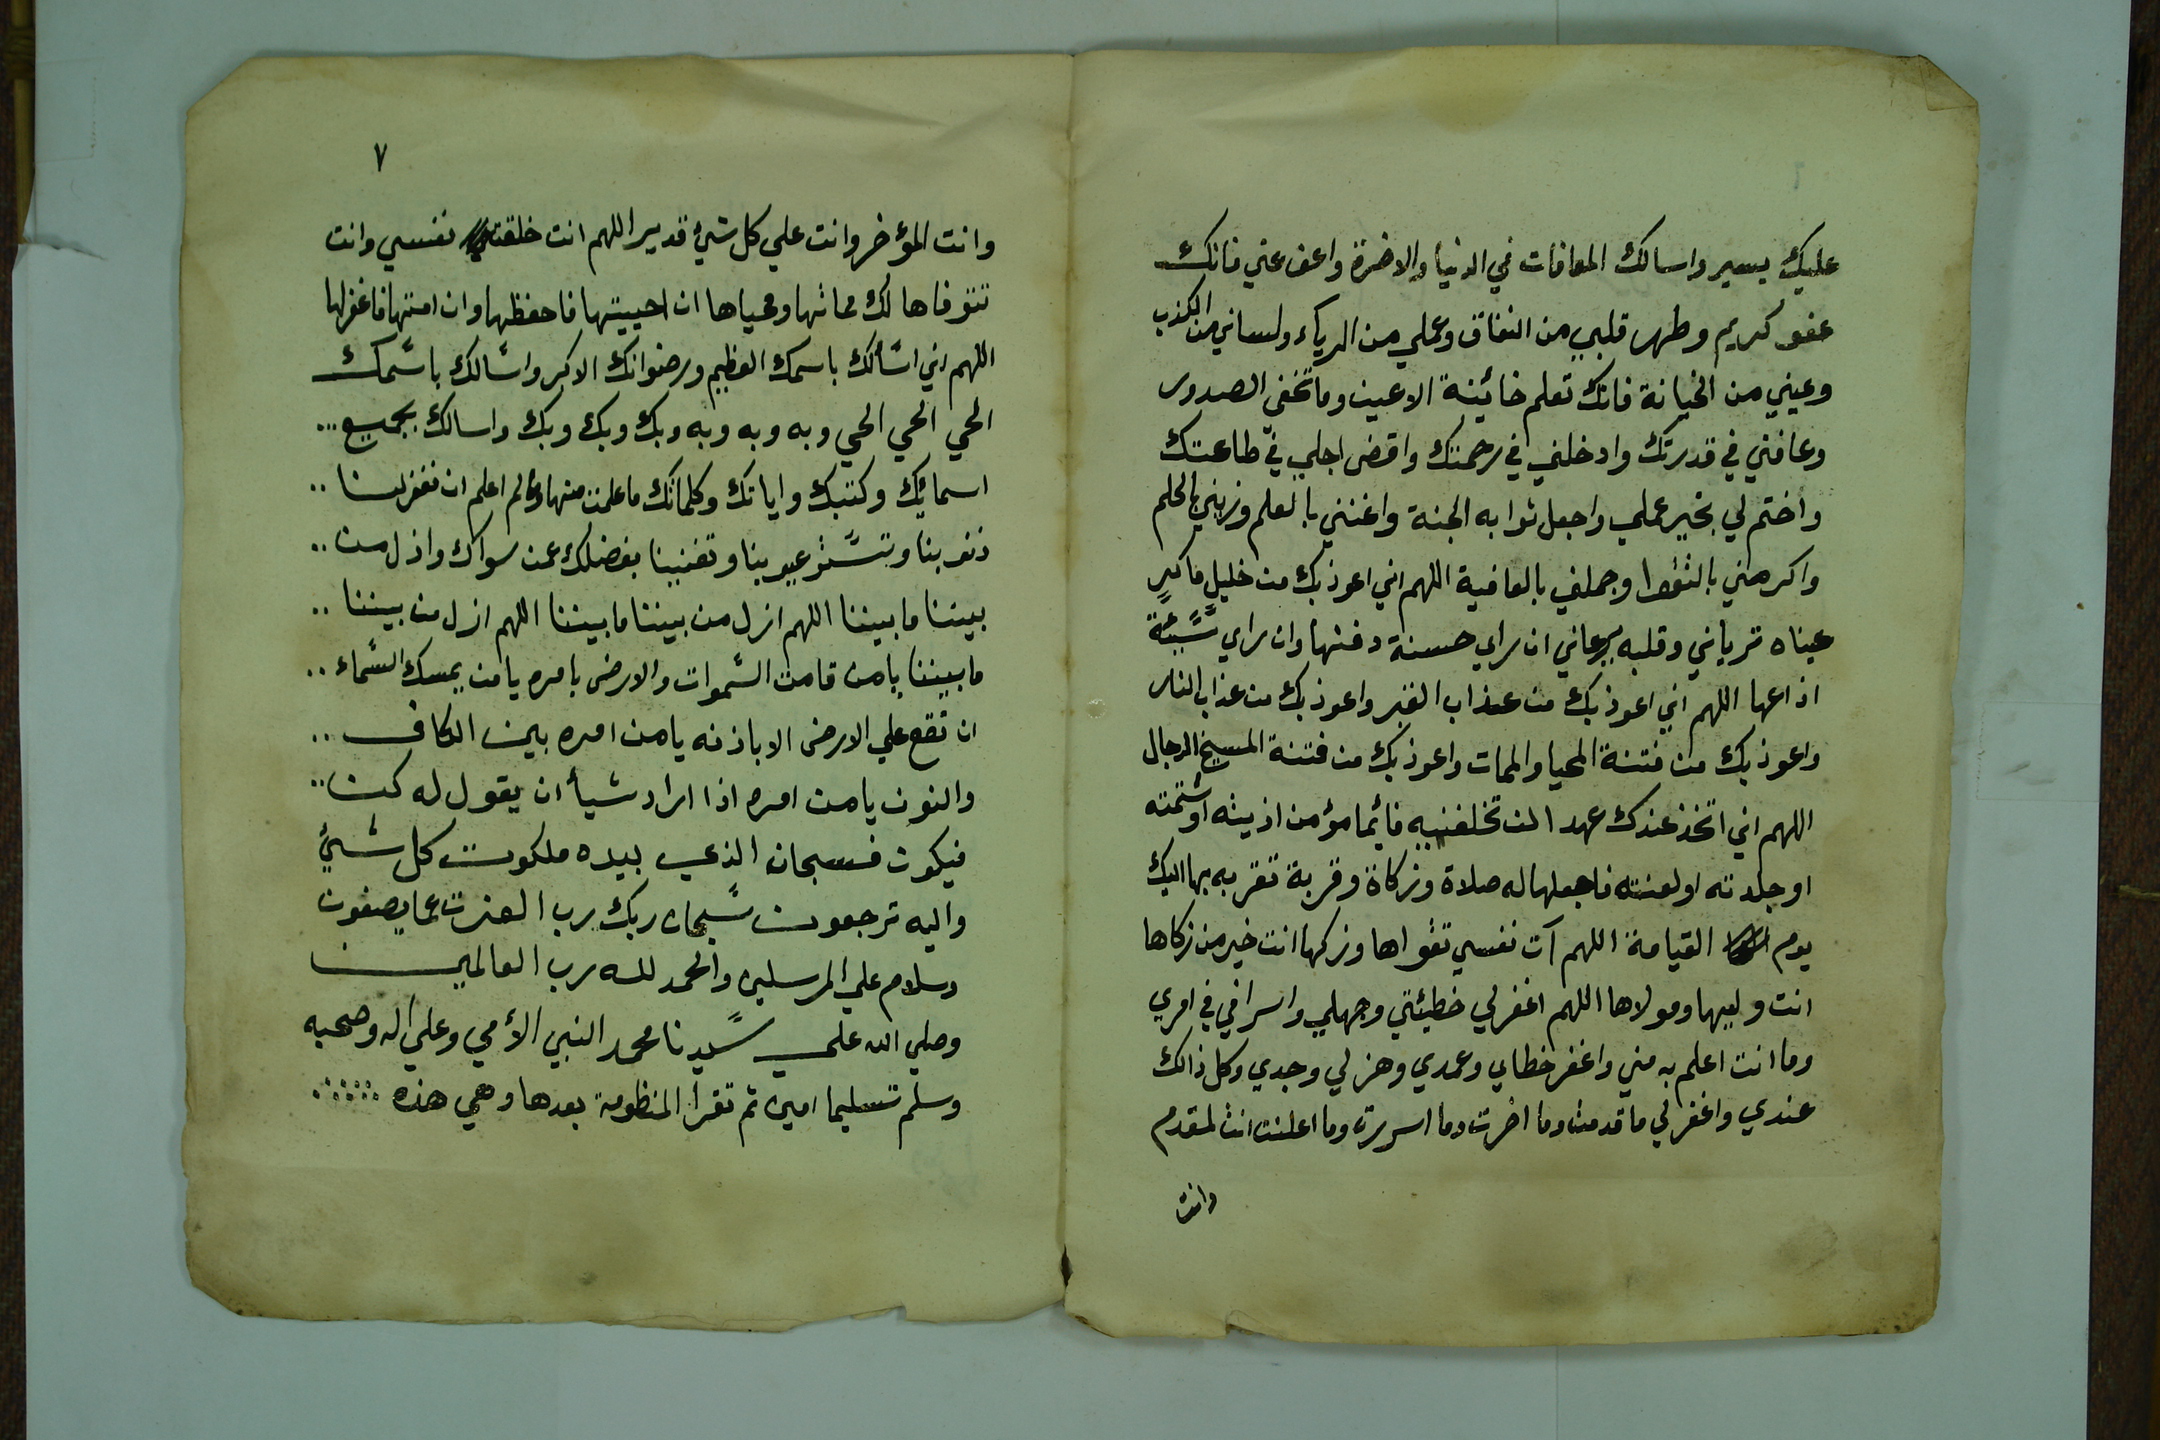 ٦
عليك يسير واسالك المعافات في الدنيا والاخرة واعف عني فانك
عفو كريم وطهر قلبي من النفاق وعملي من الرياء ولساني من الكذب
وعيني من الخيانة فانك تعلم خائينة الاعين وما تخفي الصدور
وعافني في قدرتك وادخلني في رحمتك واقض اجلي في طاعتك
واختم لي بخير عملي واجعل ثوابه الجنة واغنني بالعلم وزيني بالحلم
واكرمني بالتقوا وجملني بالعافية اللهم اني اعوذ بك من خليل ماكر
عيناه ترياني وقلبه يرعاني ان راي حسنة دفنها وان راي سيئة
اذاعها اللهم اني اعوذ بك من عذاب القبر واعوذ بك من عذاب النار
واعوذ بك من فتنة المحيا والممات واعوذ بك من فتنة المسيخ الدجال
اللهم اني اتخذ عندك عهدا لن تخلفنيه فأيما مؤمن اذيته اوشتمته
او جلدته او لعنته فاجعلها له صلاة وزكاة وقربة تقربه بها اليك
يوم القيامة اللهم آت نفسي تقواها وزكها انت خير من زكاها
انت وليها ومولاها اللهم اغفر لي خطيئتي وجهلي واسرافي في امري
وما انت اعلم به مني واغفر خطاي وعمدي وهزلي وجدي وكل ذالك
عندي واغفر لي ما قدمت وما اخرت وما اسررت وما اعلنت انت المقدم
وانت
٧
وانت المؤخر وانت علي كل شيء قدير اللهم انت خلقت نفسي وانت
تتوفاها لك مماتها ومحياها ان احييتها فاحفظها وان امتها فاغفر لها
اللهم اني اسألك باسمك العظيم ورضوانك الاكبر واسالك باسمك
الحي الحي الحي وبه وبه وبه وبك وبك وبك واسالك بجميع ...
اسمائيك وكتبك واياتك وكلماتك ما علمت منها وما لم اعلم ان تغفر لنا ..
ذنوبنا وتستر عيوبنا وتغنينا بفضلك عمن سواك وازل من ..
بيننا ما بيننا اللهم ازل من بيننا ما بيننا اللهم ازل من بيننا ..
ما بيننا يا من قامت السموات والارض بامره يا من يمسك السماء ..
ان تقع علي الارض الا باذنه يا من امره بين الكاف ..
والنون يا من امره اذا اراد شيأ ان يقول له كن ..
فيكون فسبحان الذي بيده ملكوت كل شيئ
واليه ترجعون سبحان ربك رب العزت عما يصفون
وسلام علي المرسلين والحمد لله رب العالمين
وصلي الله علي سيدنا محمد النبي الأمي وعلي اله وصحبه
وسلم تسليما امين ثم تقرا المنظومة بعدها وهي هذه